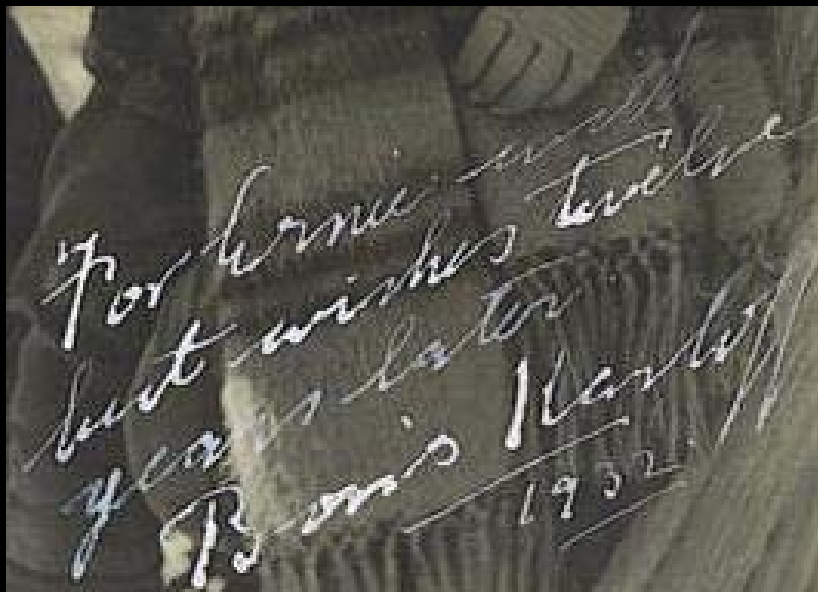 For Ernie with
best wishes twelve
years later
Boris Karloff
1932